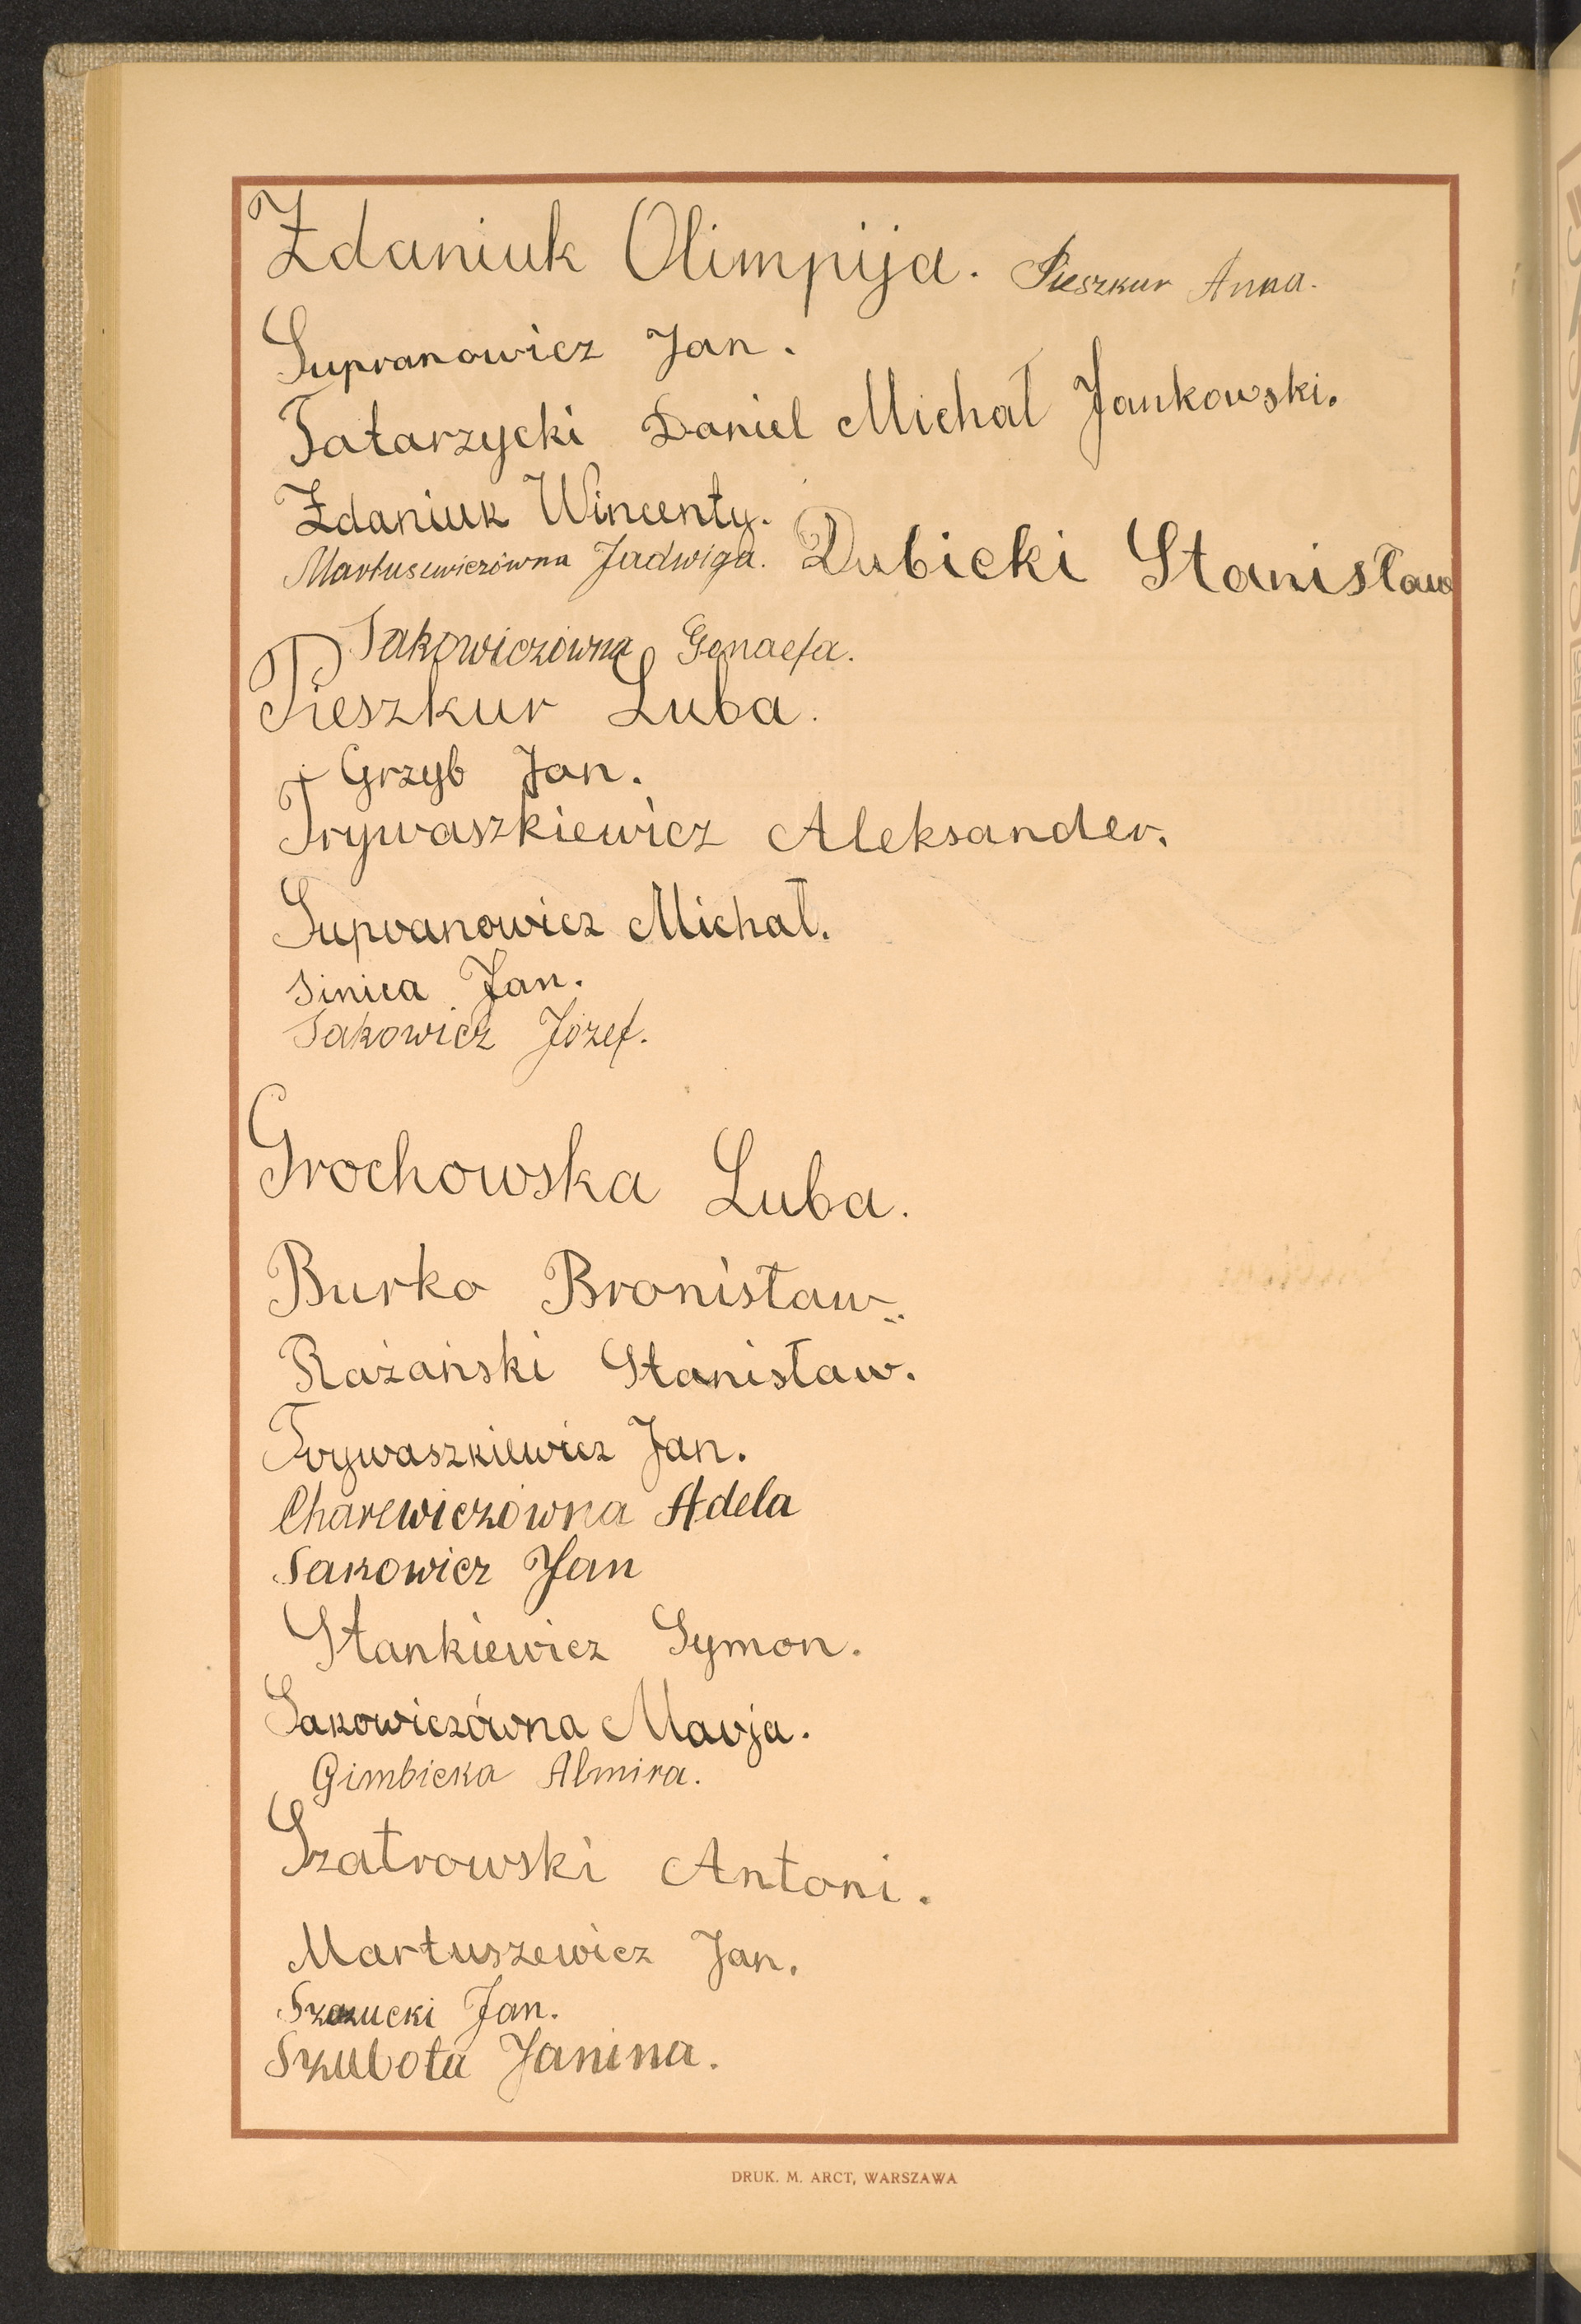 Żdaniuk Olimpija. Pieszkur Anna.
Supranowicz Jan.
Tatarzycki Daniel Michał Jankowski.
Żdaniuk Wincenty.
Martusewiczówna Jadwiga. Dubicki Stanisław
Sakowiczówna Genaefa.
Pieszkur Luba.
Grzyb Jan.
Trywaszkiewicz Aleksander.
Supranowicz Michał.
Sinica Jan.
Sakowicz Józef.
Grochowska Luba.
Burko Bronisław.
Rażański Stanisław.
Trywaszkiewicz Jan.
Charewiczówna Adela
Sakowicz Jan
Stankiewicz Symon.
Sakowiczówna Marja.
Gimbicka Almira.
Szatrowski Antoni.
Martuszewicz Jan.
Jan.
Szubota Janina.
DRUK. M. ARCT, WARSZAWA